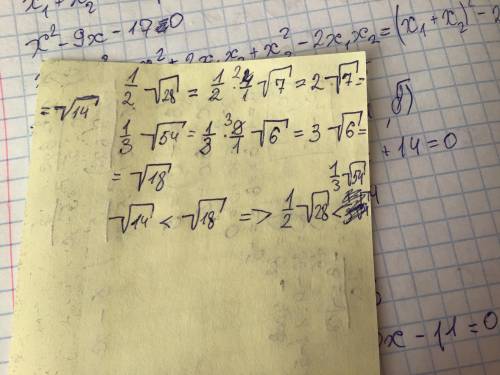 x₁ + x₂
x² - 9x - 17 = 0
+ x₂² - 2x₁x₂ = (x₁ + x₂)² - 2
1/2 √28 = 1/2 · 4/1 √7 = 2 √7 =
= √14
1/3 √54 = 1/3 · 9/1 √6 = 3 √6 =
= √18
√14 < √18 => 1/2 √28 < 1/3 √54
+ 14 = 0
x - 11 = 0